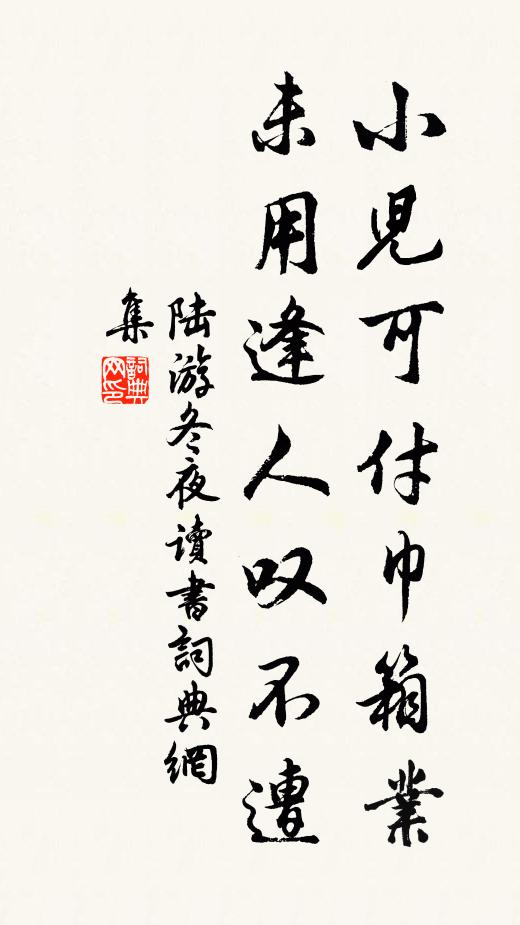 小兒可付巾箱業
未用逢人叹不遭
陆游冬夜讀書詞典網
集
詞典
网印